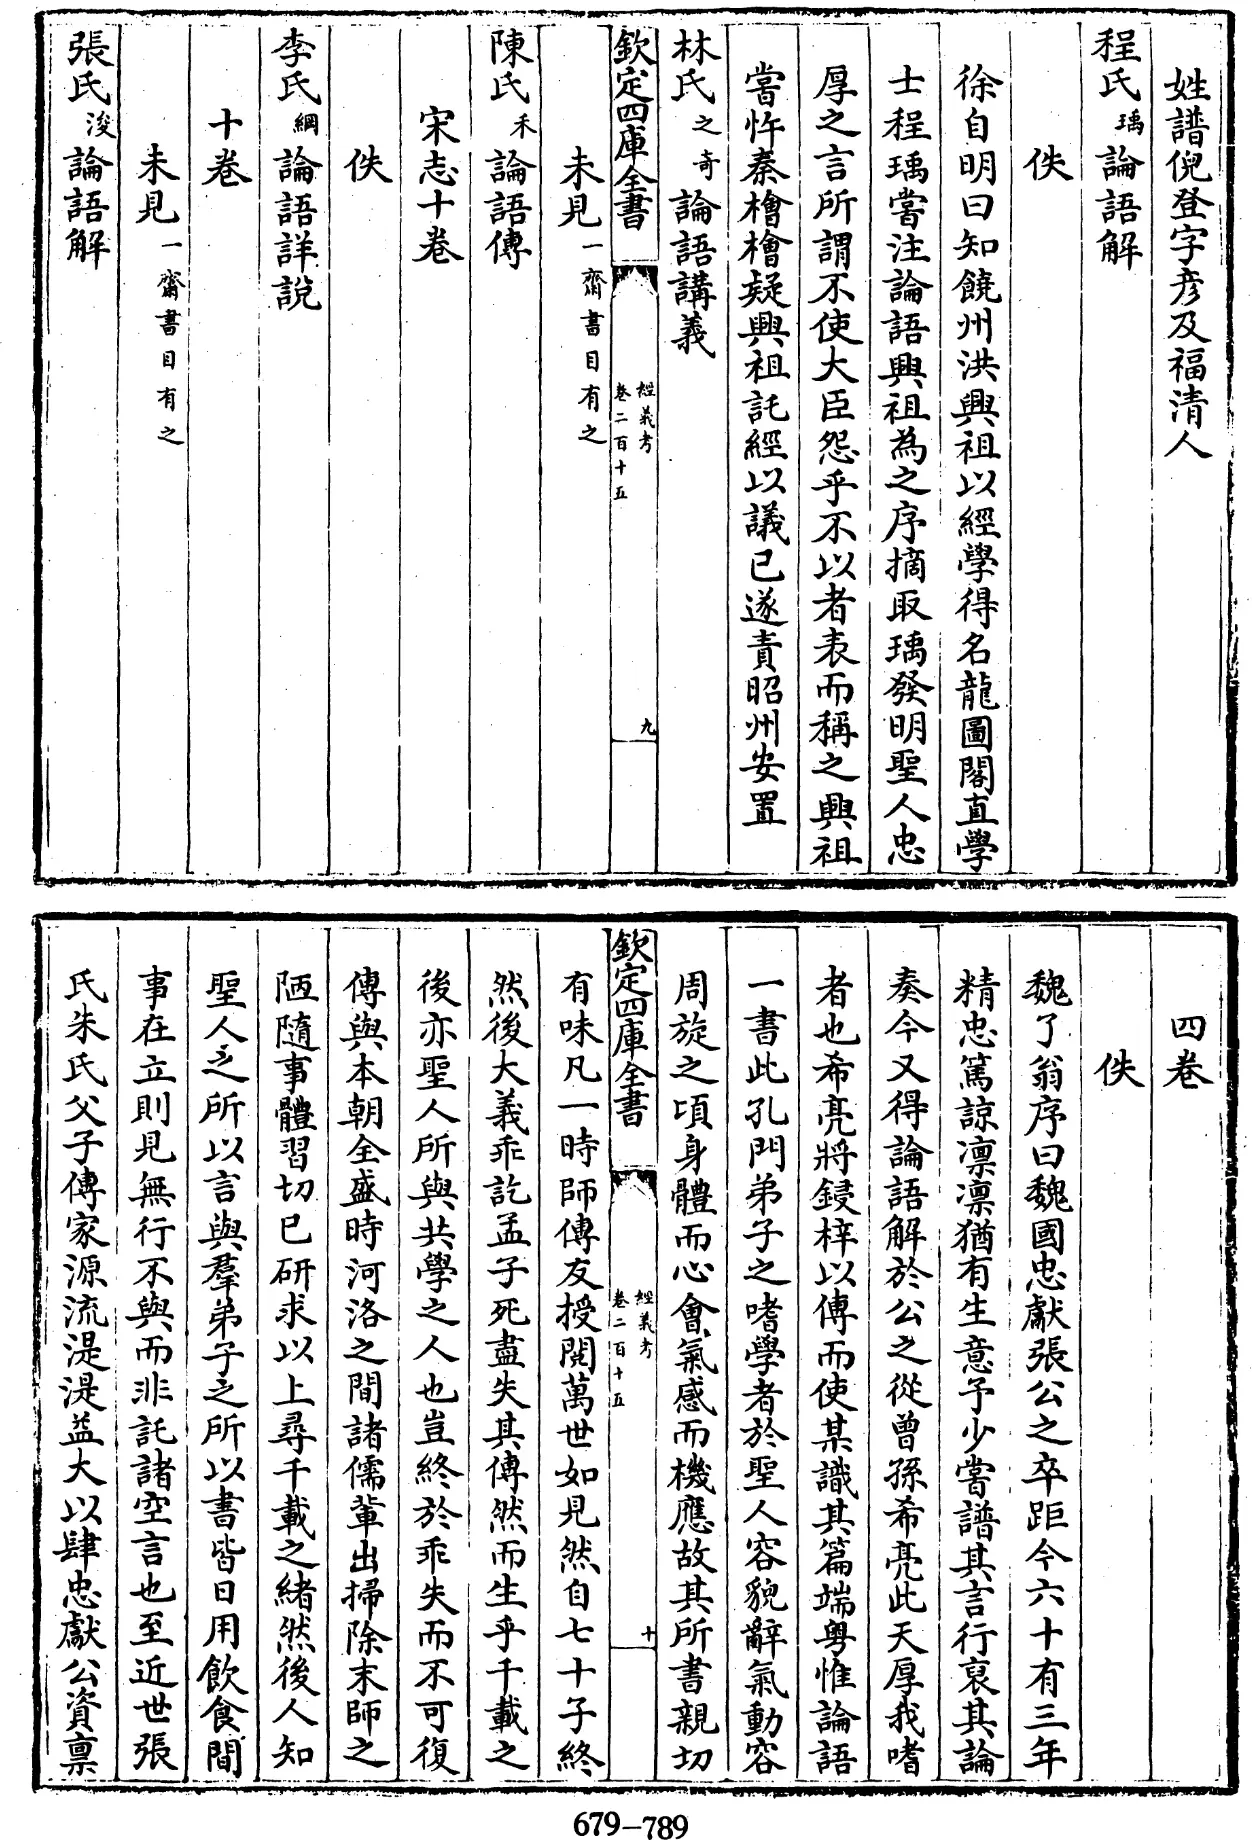 姓譜倪登字彥及福清人
程氏瑀論語解
佚
徐自明曰知饒州洪興祖以經學得名龍圖閣直學
士程瑀嘗注論語興祖為之序摘取瑀發明聖人忠
厚之言所謂不使大臣怨乎不以者表而稱之興祖
嘗忤秦檜檜疑興祖託經以議已遂責昭州安置
林氏之奇論語講義
欽定四庫全書
經義考
卷二百十五
九
未見一齋書目有之
陳氏禾論語傳
宋志十卷
佚
李氏綱論語詳說
十卷
未見一齋書目有之
張氏浚論語解
四卷
佚
魏了翁序曰魏國忠獻張公之卒距今六十有三年
精忠篤諒凛凛猶有生意予少嘗譜其言行裒其論
奏今又得論語解於公之從曾孫希亮此天厚我嗜
者也希亮將鋟梓以傳而使某識其篇端粵惟論語
一書此孔門弟子之嗜學者於聖人容貌辭氣動容
周旋之頃身體而心會氣感而機應故其所書親切
欽定四庫全書
經義考
卷二百十五
十
有味凡一時師傳友授閱萬世如見然自七十子終
然後大義乖訖孟子死盡失其傳然而生乎千載之
後亦聖人所與共學之人也豈終於乖失而不可復
傳與本朝全盛時河洛之間諸儒輩出掃除末師之
陋隨事體習切已研求以上尋千載之緒然後人知
聖人之所以言與羣弟子之所以書皆日用飲食間
事在立則見無行不與而非託諸空言也至近世張
氏朱氏父子傳家源流湜湜益大以肆忠獻公資稟
679-789